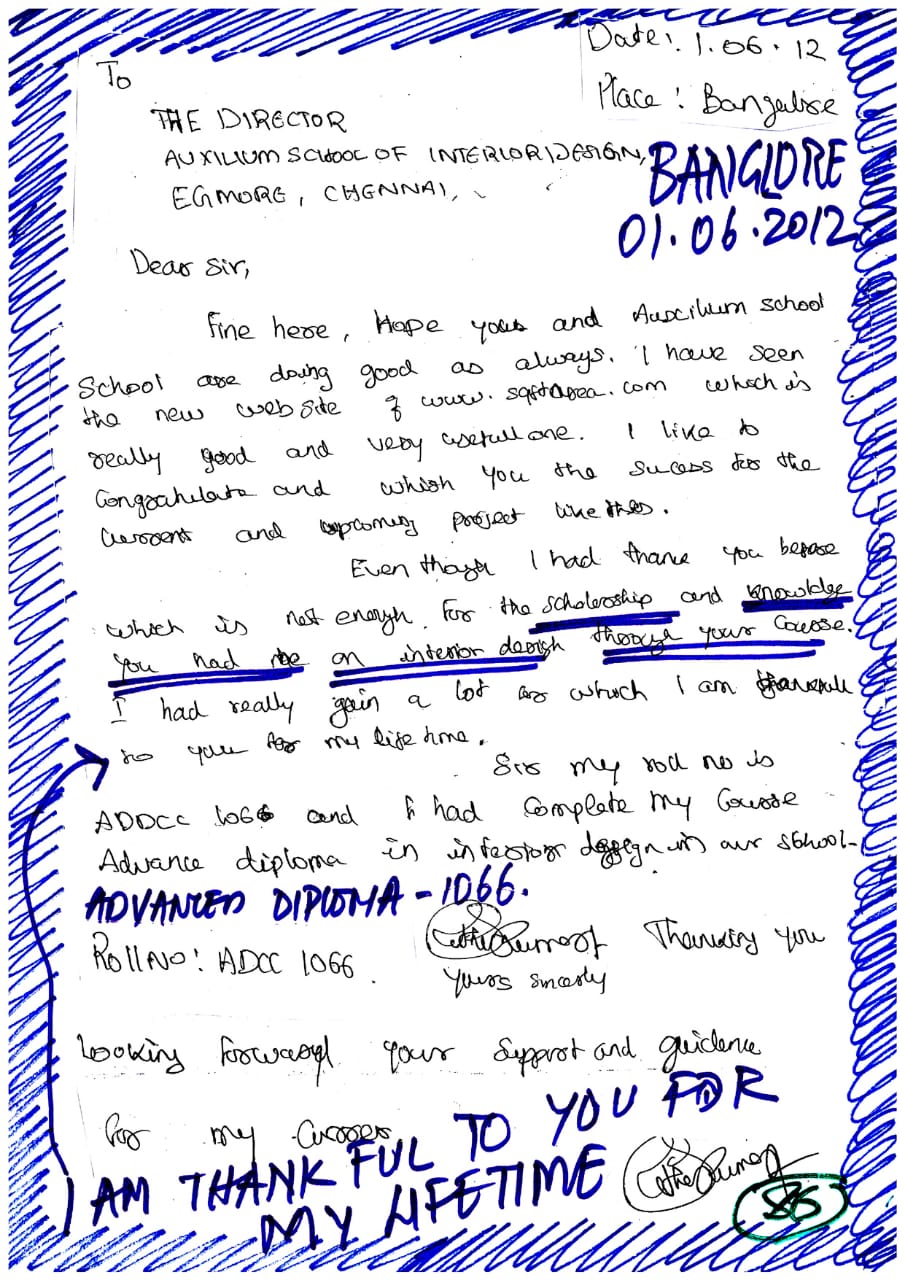 Date: 1.06.12
Place: Bangalore
To
THE DIRECTOR
AUXILIUM SCHOOL OF INTERIOR DESIGN,
EGMORE, CHENNAI,
BANGLORE
01.06.2012
Dear Sir,
Fine here, Hope your and Auxcilium school
School are doing good as always. I have seen
the new website of www.sqftarea.com which is
really good and very usefull one. I like to
Congratulate and whish you the sucess for the
current and upcoming project like this.
Even though I had thank you before
which is not enough. For the scholership and knowldge
you had me on interior design through your Course.
I had really gain a lot for which I am thankfull
to you for my life time.
Sir my roll no is
ADDCC 1066 and I had complete my Course
Advance diploma in interior design in our school.
ADVANCED DIPLOMA - 1066.
Roll No: ADCC 1066
Thanking you
yours sincerly
Looking forward your Support and guidence
for my career
I AM THANKFUL TO YOU FOR
MY LIFETIME
86